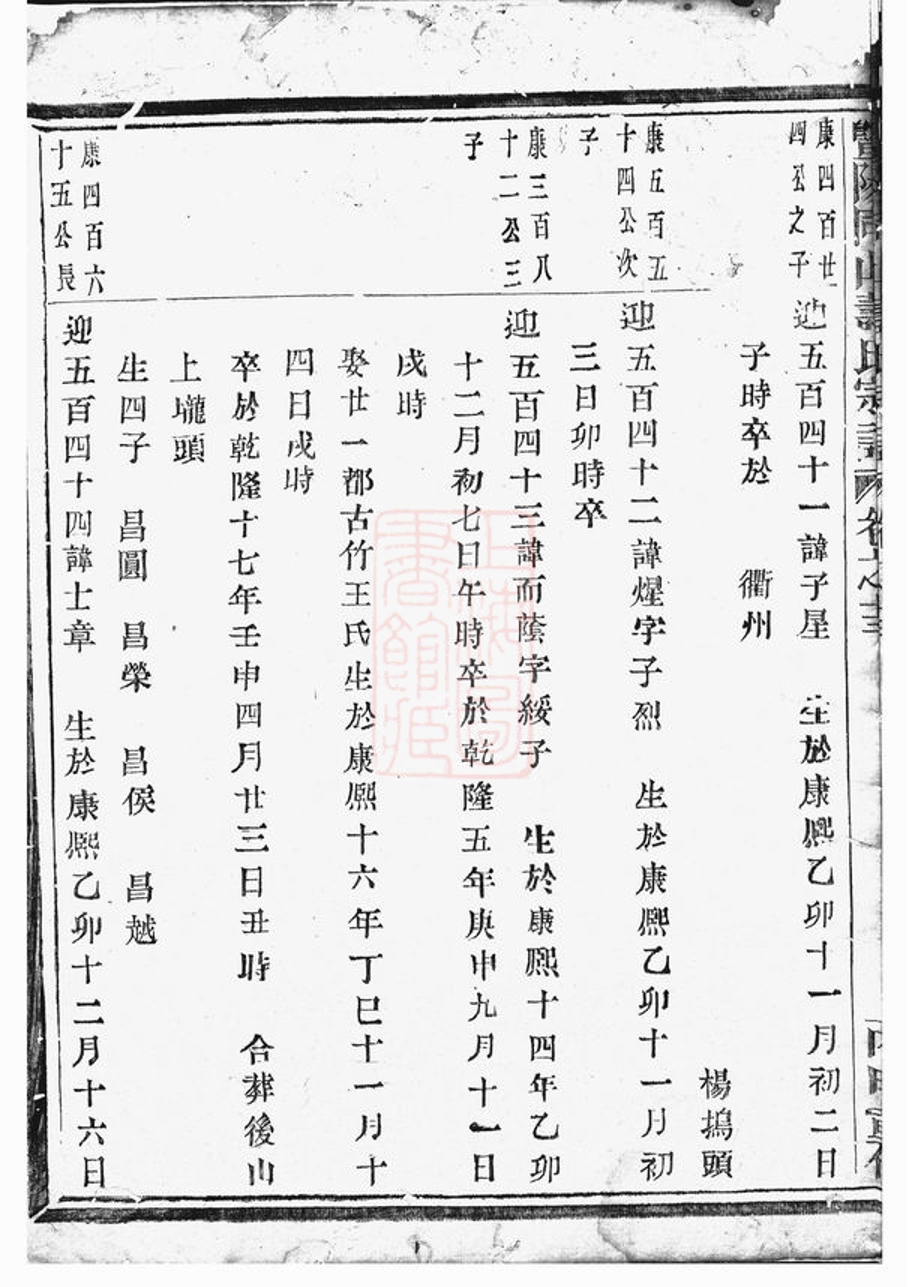 暨陽同山壽氏宗譜 卷之
康四百廿
四公之子
迎五百四十一諱子星 生於康熙乙卯十一月初二日
子時卒於 衢州
楊塢頭
康五百五
十四公次
子
迎五百四十二諱燿字子烈 生於康熙乙卯十一月初
三日卯時卒
康三百八
十二公三
子
迎五百四十三諱而蔭字綏子 生於康熙十四年乙卯
十二月初七日午時卒於乾隆五年庚申九月十一日
戌時
娶廿一都古竹王氏生於康熙十六年丁巳十一月十
四日戌時
卒於乾隆十七年壬申四月廿三日丑時 合葬後山
上壠頭
生四子 昌圓 昌榮 昌俟 昌越
康四百六
十五公長
迎五百四十四諱士章 生於康熙乙卯十二月十六日
上海圖
書館藏